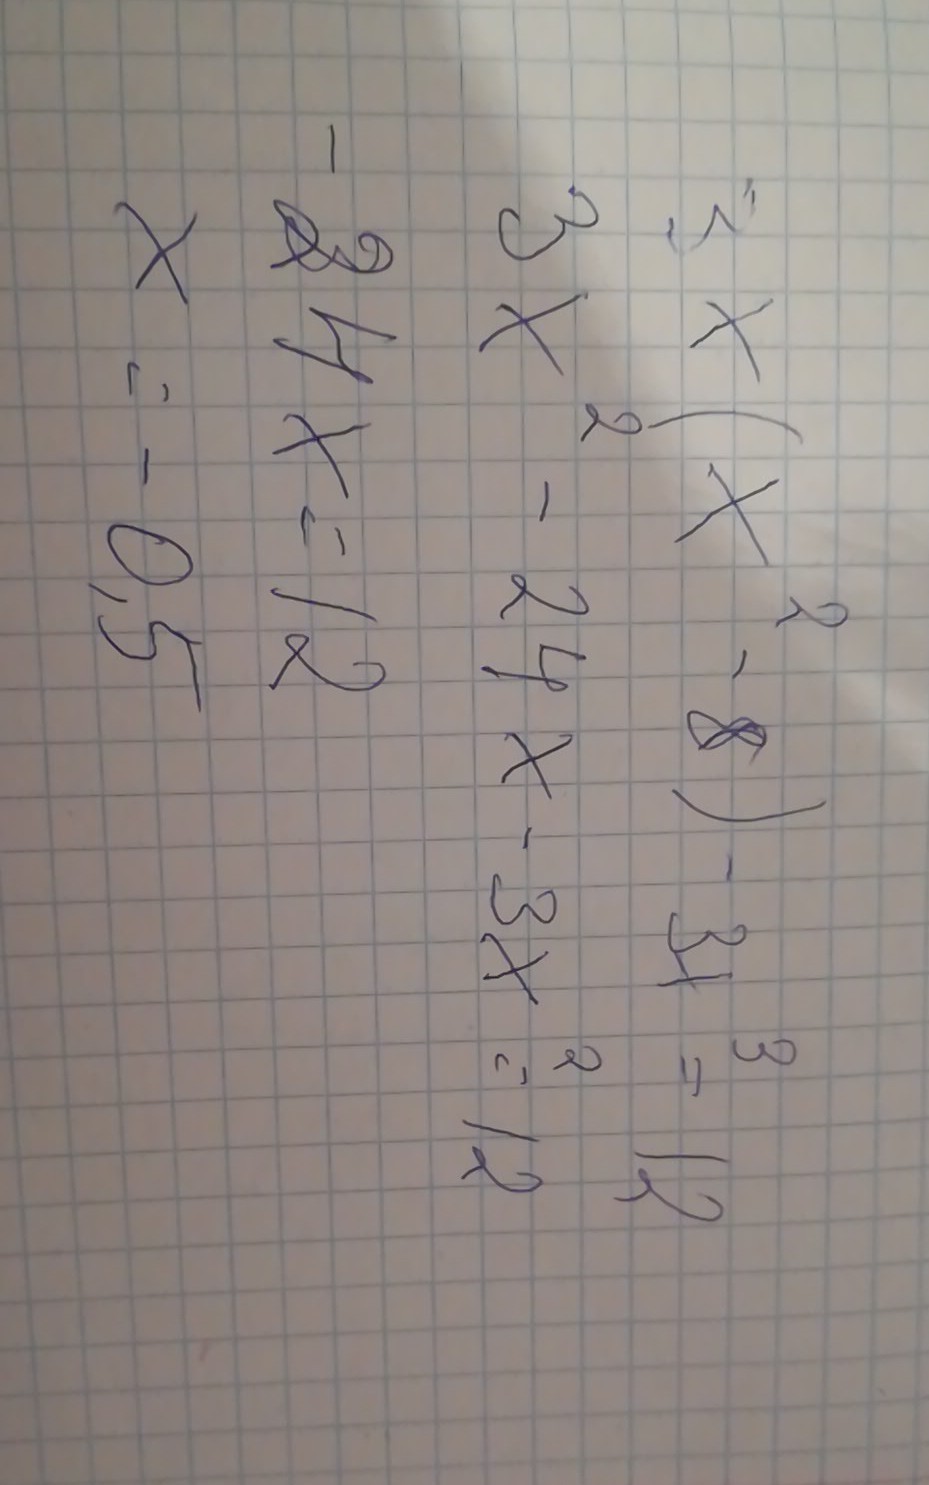 3x(x²-8)-3x³=12
3x²-24x-3x²=12
-24x=12
x=-0,5